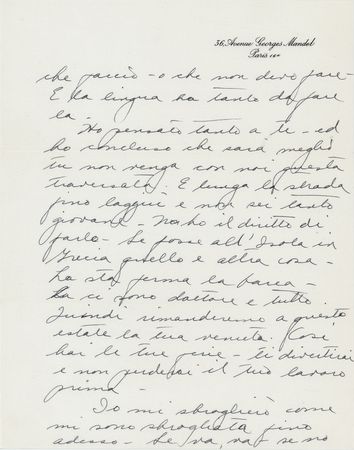 36, Avenue Georges Mandel
Paris 16e
che faccio - o che non devo fare -
E la lingua ha tanto da fare
la -
Ho pensato tanto a te - ed
ho concluso che sara meglio
tu non venga con noi questa
traversata. E lunga la strada
fino laggiu e non sei tanto
giovane - Non ho il diritto di
farlo - Se fosse all'Isola in
Grecia quello e altra cosa -
La sta ferma la barca -
La ci sono dottore e tutto.
Quindi rimanderemo a questa
estate la tua venuta. Cosi
hai le tue ferie - ti divertirai
e non perderai il tuo lavoro
prima -
Io mi sbroglierò come
mi sono sbrogliata fino
adesso - Se va, va, se no